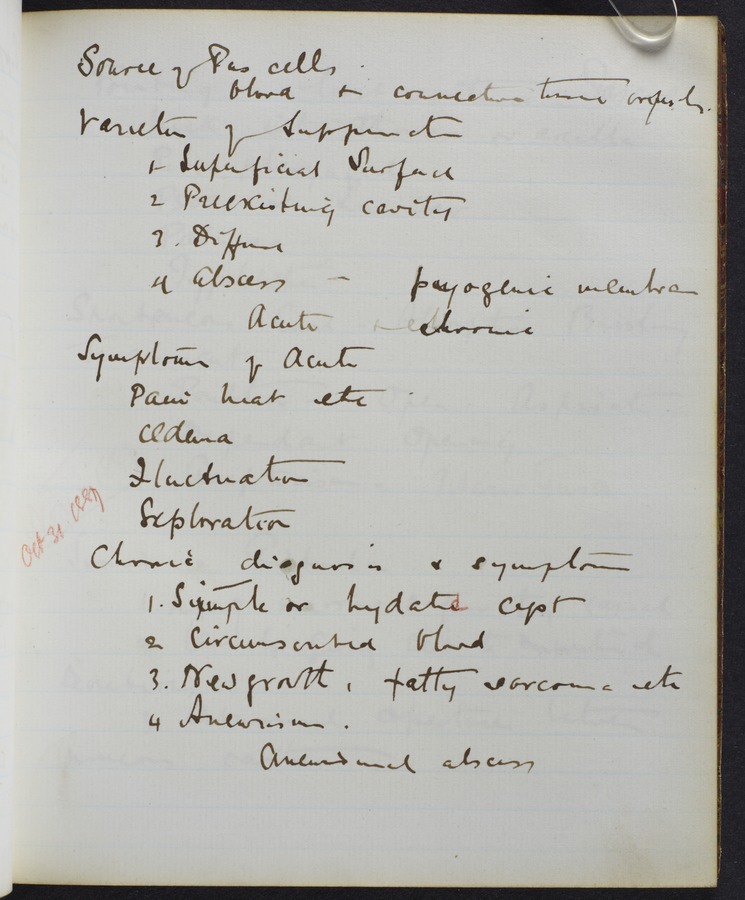 Source of Pus cells.
blood & connective tissue corpscls.
Varieties of Suppuration
1 Superficial Surface
2 Preexisting cavity
3. Diffuse
4 abscess — pyogenic membran
Acute & chronic
Symptoms of Acute
Pain heat etc
Œdema
Fluctuation
Exploration
Oct 31 1887
Chronic diagnosis & symptoms
1. Simple or hydatid cyst
2 Circumscribed blood
3. New growth, fatty sarcoma etc
4 Aneurism.
Aneurismal abscess